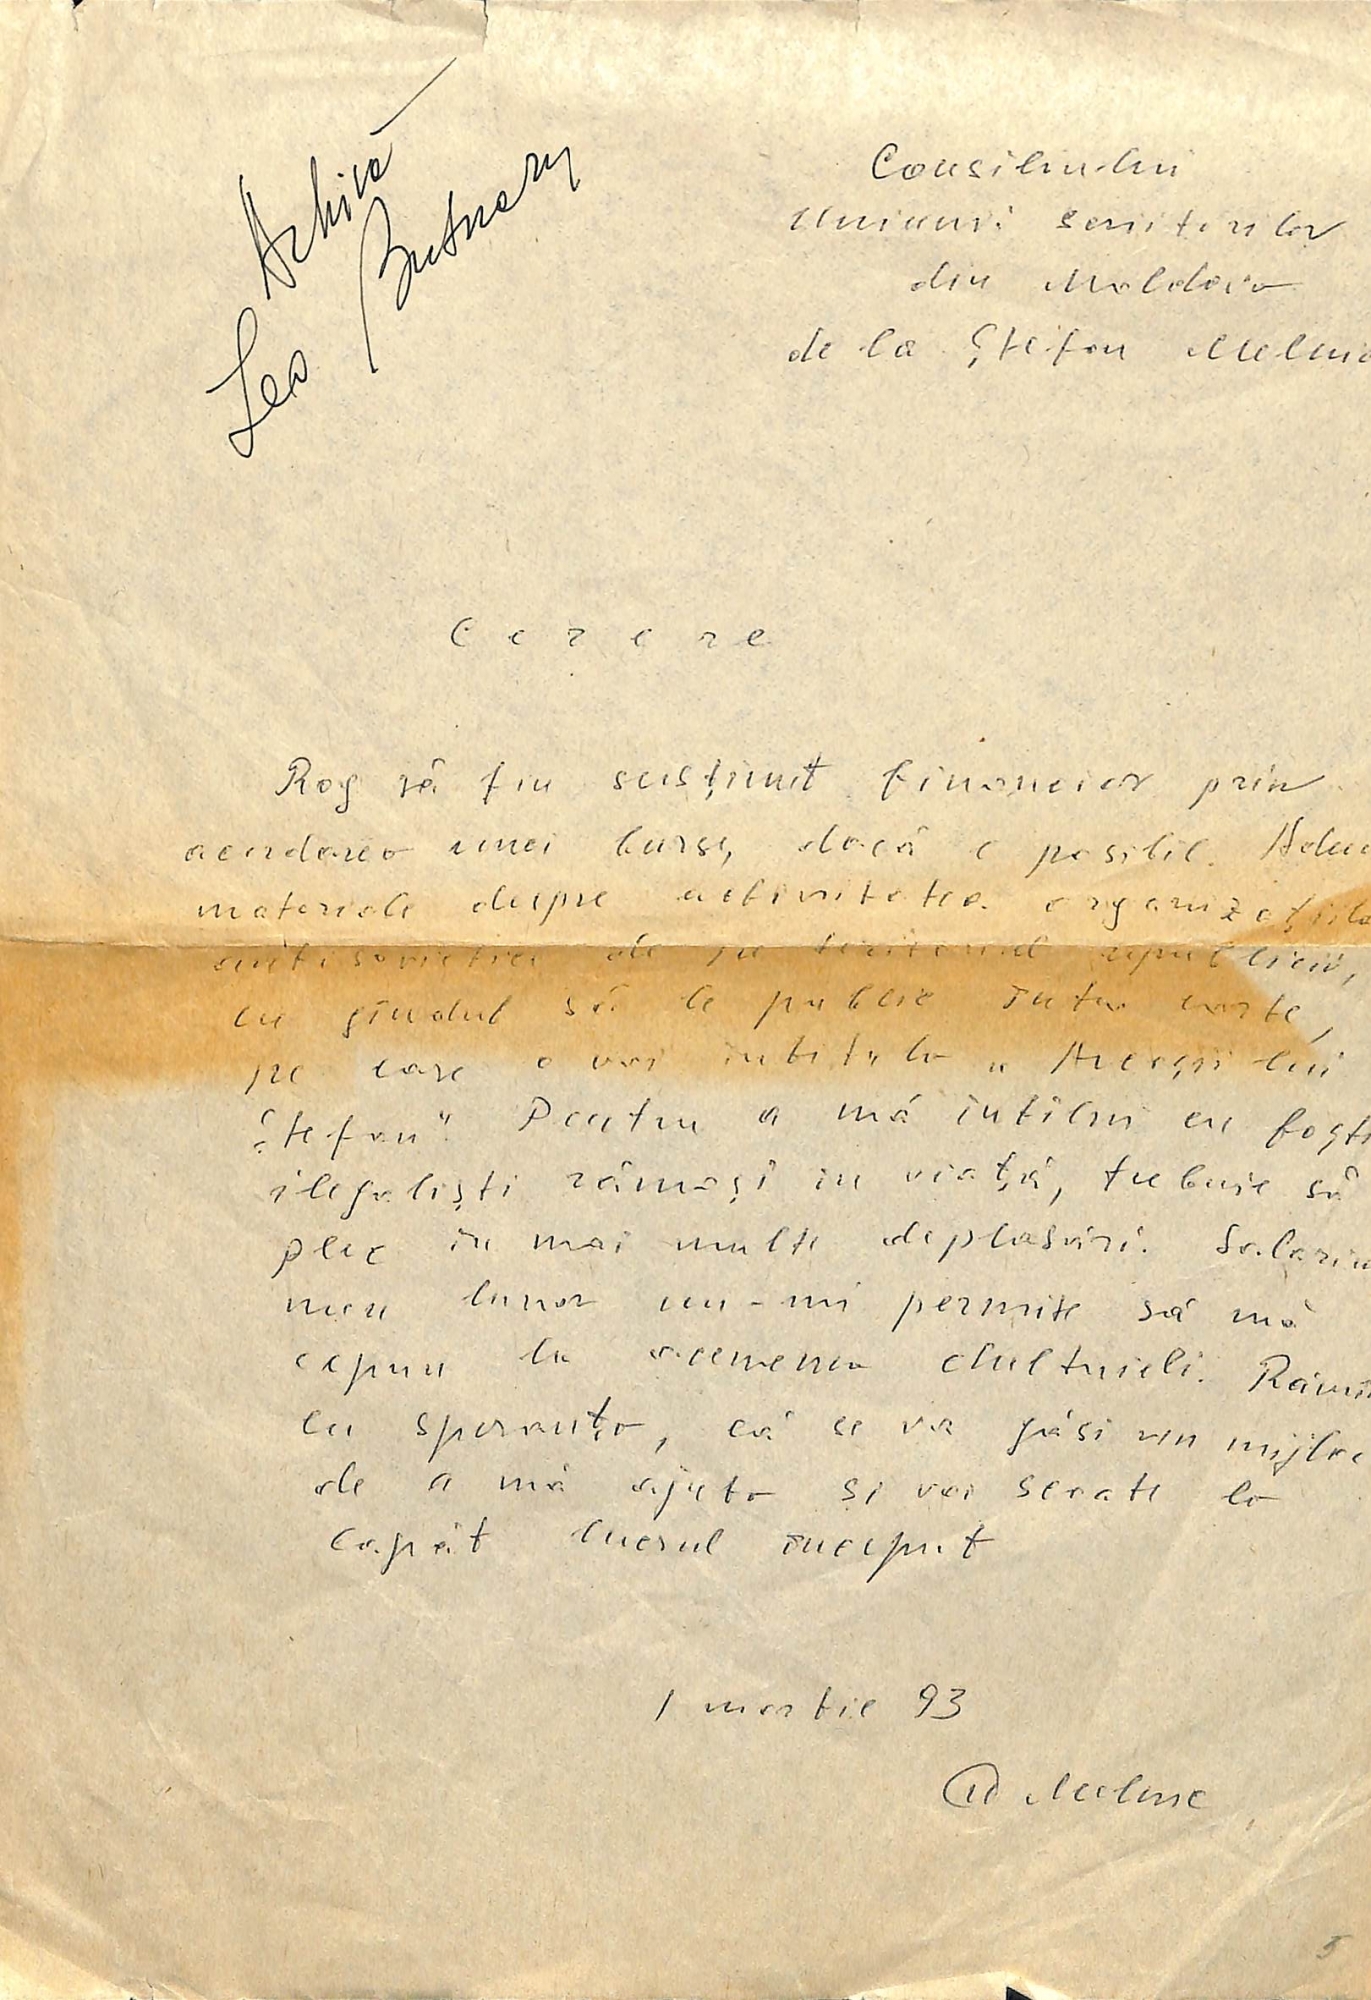 Arhiva
Leo Butnaru
Consiliului
Uniunii Scriitorilor
din Moldova
de la Ștefan Melnic
Cerere
Rog să fiu susținut financiar prin
acordarea unei burse, dacă e posibil. Adun
materiale despre activitatea organizațiilor
antisovietice de pe teritoriul republicii,
cu gîndul să le public într-o carte,
pe care o voi intitula „Arcașii lui
Ștefan". Pentru a mă întîlni cu foști
ilegaliști rămași în viață, trebuie să
plec în mai multe deplasări. Salariu
meu lunar nu-mi permite să mă
expun la asemenea cheltuieli. Rămîn
cu speranța, că se va găsi un mijloc
de a mă ajuta și voi scoate la
capăt lucrul început
1 martie 93
Melnic
5